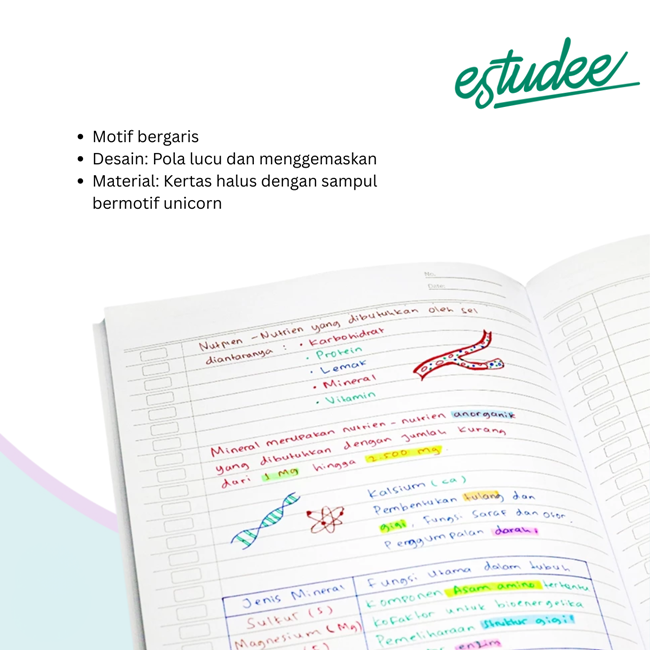 estudee
• Motif bergaris
• Desain: Pola lucu dan menggemaskan
• Material: Kertas halus dengan sampul
bermotif unicorn
No.
Date
Nutrien - Nutrien yang dibutuhkan oleh sel
diantaranya : • Karbohidrat
• Protein
• Lemak
• Mineral
• Vitamin
Mineral merupakan nutrien - nutrien anorganik
yang dibutuhkan dengan jumlah kurang
dari 1 mg hingga 2.500 mg.
Kalsium (Ca)
Pembentukan tulang dan
gigi, fungsi saraf dan otot,
Penggumpalan darah
Jenis Mineral
Fungsi Utama dalam tubuh
Sulfur (S)
Komponen Asam amino tertentu
Magnesium (Mg)
Kofaktor untuk bioenergetika
Pemeliharaan struktur gigi
enzim